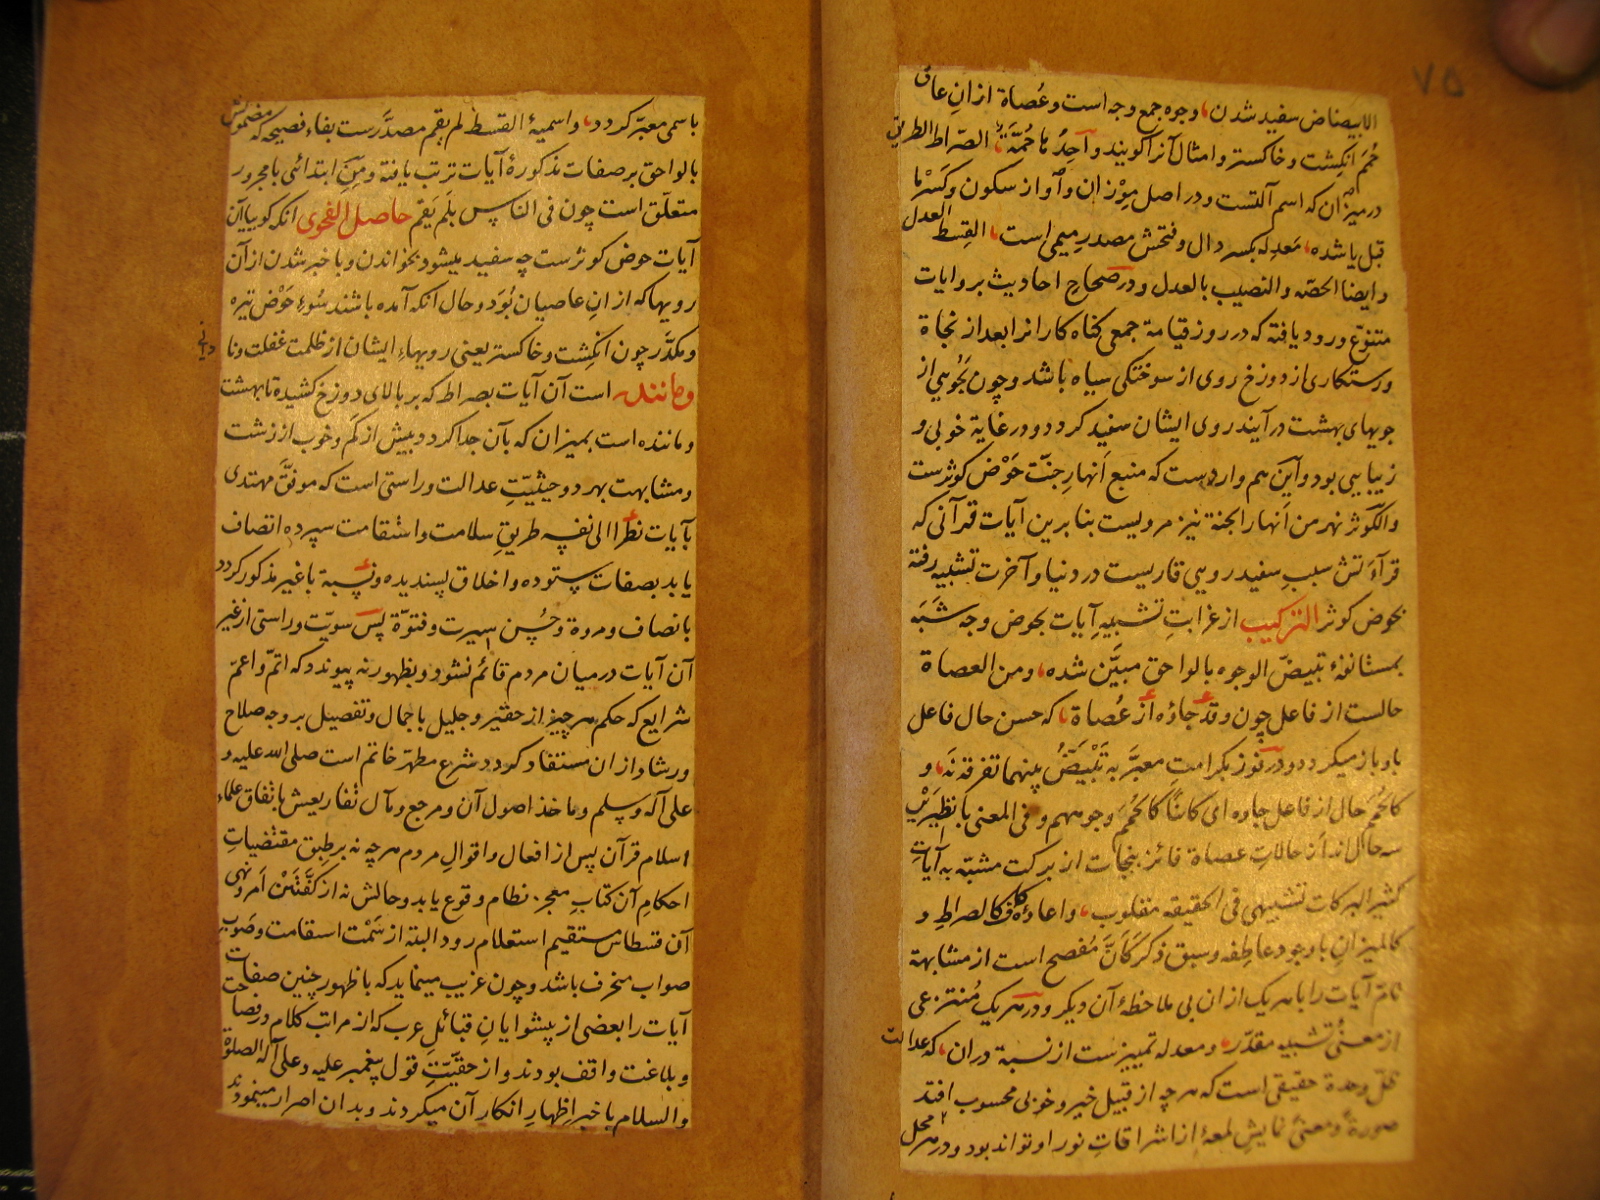 ٧٥
الابیضاض سفید شدن، وجوه جمع وجه است و عُصاة ازان عاقّ
حُمَم انکشت و خاکستر و امثال آنرا کویند و آحِدُ ها حُمَّة، الصّراط الطریق
در میزان که اسم آلتست و در اصل مِوْزان و آواز سکون و کسر ما
قبل یا شده، مَعدِله بکسر دال و فتحش مصدر میمی است، القِسط العدل
و ایضا الحصّه و النصیب بالعدل و در صحاح احادیث بروایات
متنوّع ورود یافته که در روز قیامة جمعی کناه کارانرا بعد از نجاة
و رستکاری از دوزخ روی از سوختکی سیاه باشد و چون بجُویی از
جویهای بهشت در آیند روی ایشان سفید کردد و در غایة خوبی و
زیبایی بود و این هم واردست که منبع اَنهارِ جنّت حَوْض کوثرست
و الکوثر نهر من اَنهار الجنة نیز مرویست بنا برین آیات قرآنی که
قرآءتش سببِ سفید رویی قاریست در دنیا و آخرت تشبیه رفته
بحوض کوثر الترکیب از غرابتِ تشبیهِ آیات بحوض وجه شَبَه
بمستانفهٔ تبیضّ الوجوه بالواحق مبیَّن شده، و من العصاة
حالست از فاعل چون و قد جاؤه از عُصاة، که حسن حال فاعل
باو باز میکردد و در فوز بکرامت معبَّر به تَبْیَضُّ بینهما تفرقه نه، و
کالحُمَم حال از فاعل جاوه ای کائنًا کالحُمَم وجوههم و فی المعنی بانظیرَیْن
سه حال‌اند از حالاتِ عصاة فائز بنجات از برکت مشبّه به آیاتِ
کثیر البرکات تشبیهی فی الحقیقه مقلوب، و اعادهٔ کاف کالصراطِ و
کالمیزانِ با وجود عاطِفه و سبق ذکر کَاَنَّ مُفصح است از مشابهة
تامّ آیات را با هر یک ازان بی ملاحظهٔ آن دیکر و در هر یک مُنتزعی
از معنیٔ تشبیه مقدّر، و معدله تمییزست از نسبة دران، که عدالت
ظلّ وحدة حقیقی است که هر چه از قبیل خیر و خوبی محسوب افتد
صورةً و معنیً نمایشِ لمعهٔ از اشراقاتِ نور او تواند بود و در هر محل
باسمی معبّر کردد، و اسمیهٔ القسط لم یقم مصدَّرست بفاء فصیحه که مضمونش
بالواحق بر صفات مذکورهٔ آیات ترتب یافته و مِن ابتدائی با مجرور
متعلّق است چون فی الناس بلَم یَقُم حاصل الفحوی انکه کوییا آن
آیات حوض کوثرست چه سفید میشود بخواندن و با خبر شدن از آن
رویها که از انِ عاصیان بُوَد و حال انکه آمده باشند سُویِ حَوْض تیره
و مکدّر چون انکِشت و خاکستر یعنی رویهاءِ ایشان از ظلمت غفلت و نا
دانی
و مانند است آن آیات بصراط که بر بالای دوزخ کشیده تا بهشت
و ماننده است بمیزان که بآن جدا کردد بیش از کم و خوب از زشت
و مشابهت بهر دو حیثیّتِ عدالت و راستی است که موفَّق مهتدی
بآیات نظرًا الی نفسه طریقِ سلامت و استقامت سپرده اتصاف
یابد بصفات ستوده و اخلاق پسندیده و نسبة با غیر مذکور کردد
بانصاف و مروة و حُسْن سیرت و فتوّة پس سویّت و راستی از غیر
آن آیات در میان مردم قائم نشود و بظهور نه پیوندد که اتمّ و اعمّ
شرایع که حکم هر چیز از حقیر و جلیل باجمال و تفصیل بر وجه صلاح
و رشاد ازان مستفاد کردد شرع مطهّر خاتم است صلی الله علیه و
علی آله و سلم و ماخذ اصول آن و مرجع و مآل تفاریعش باتفاق علماء
اسلام قرآن پس از افعال و اقوال مردم هر چه نه بر طبق مقتضیاتِ
احکام آن کتابِ معجز نظام وقوع یابد و حالش نه از کفّتَیْن اَمر و نهی
آن قسطاس مستقیم استعلام رود البته از سَمْت استقامت و صَوْب
صواب منحرف باشد و چون غریب مینماید که با ظهور چنین صفات
آیات را بعضی از پیشوایانِ قبائلِ عرب که از مراتب کلام و فصاحت
و بلاغت واقف بودند و از حقیّتِ قول پیغمبر علیه و علی آله الصلوة
و السلام با خبر اِظهارِ انکار آن میکردند و بدان اصرار مینمودند